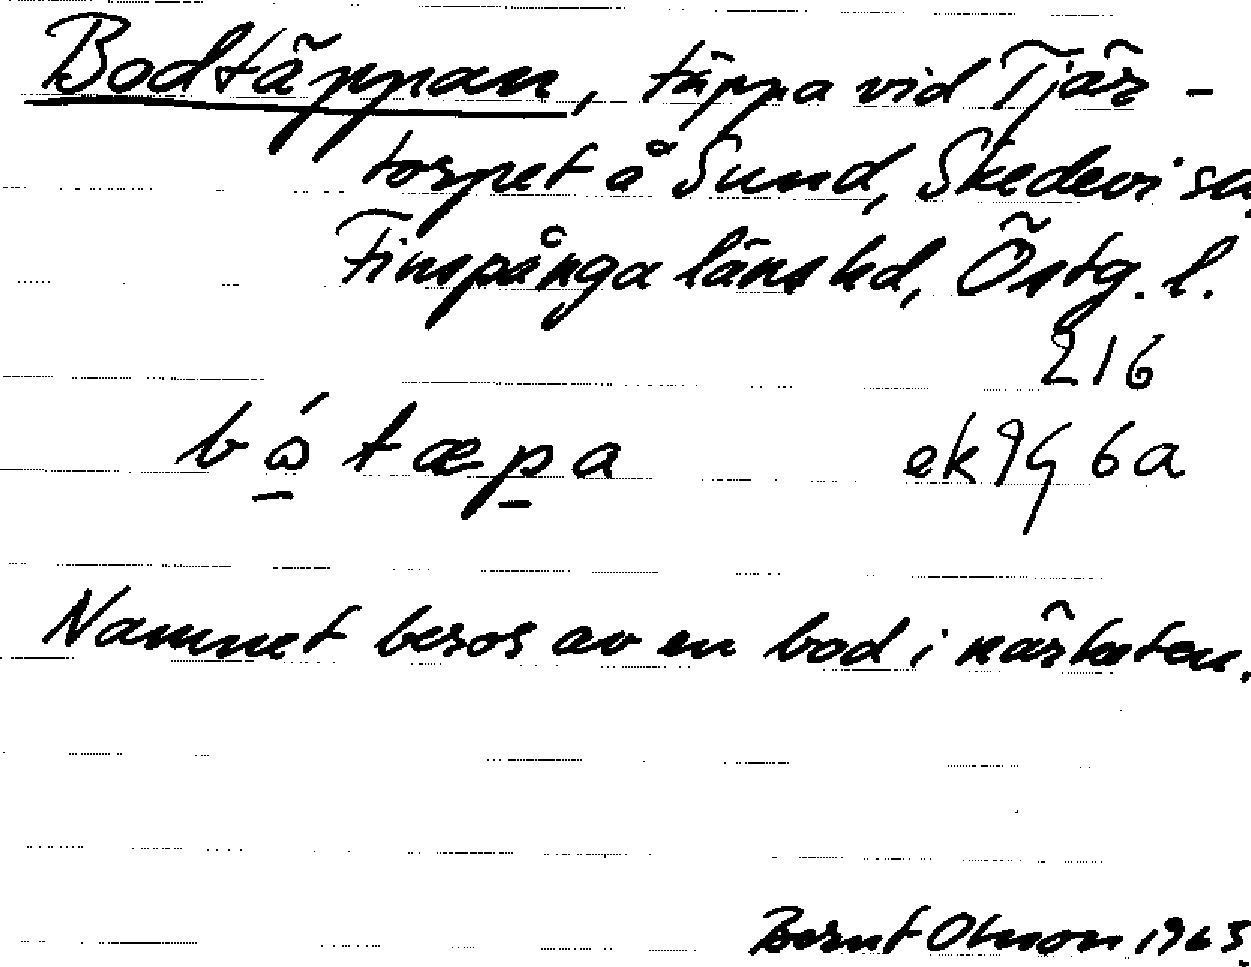 Bodtäppan, täppa vid Tjär-
torpet å Sund, Skedevi sn,
Finspånga läns hd, Östg. l.
216
ek 9G 6a
Namnet beros av en bod i närheten.
Bernt Olsson 1965